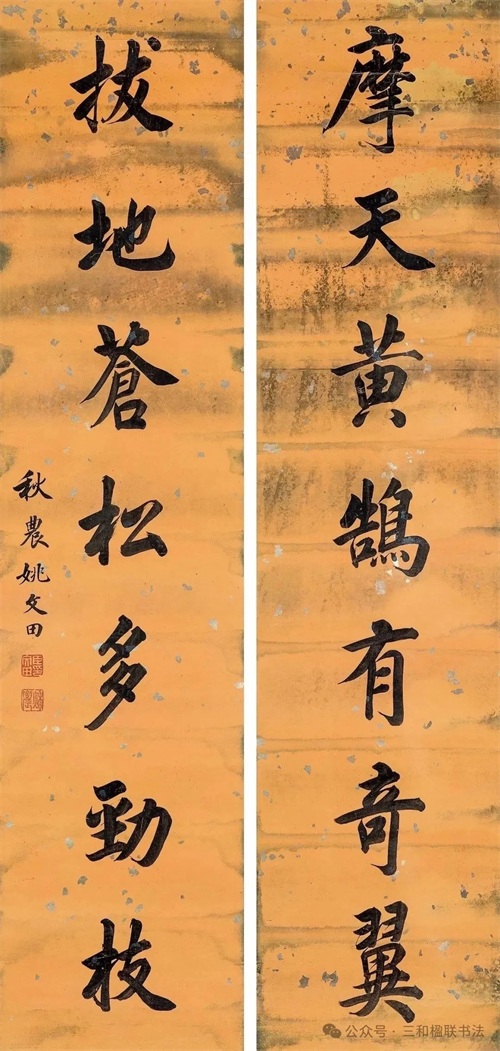 摩天黄鵠有奇翼
拔地蒼松多勁枝
秋農姚文田
公众号·三和楹联书法